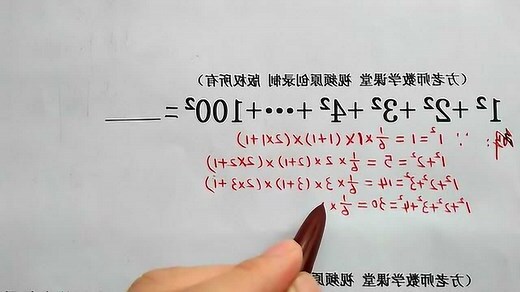 (方老师数学课堂 视频原创录制 版权所有)
1²+2²+3²+4²+···+100²=____
解: ∵ 1²=1=1/6×1×(1+1)×(2×1+1)
1²+2²=5=1/6×2×(2+1)×(2×2+1)
1²+2²+3²=14=1/6×3×(3+1)×(2×3+1)
1²+2²+3²+4²=30=1/6×
(方老师数学课堂 视频原